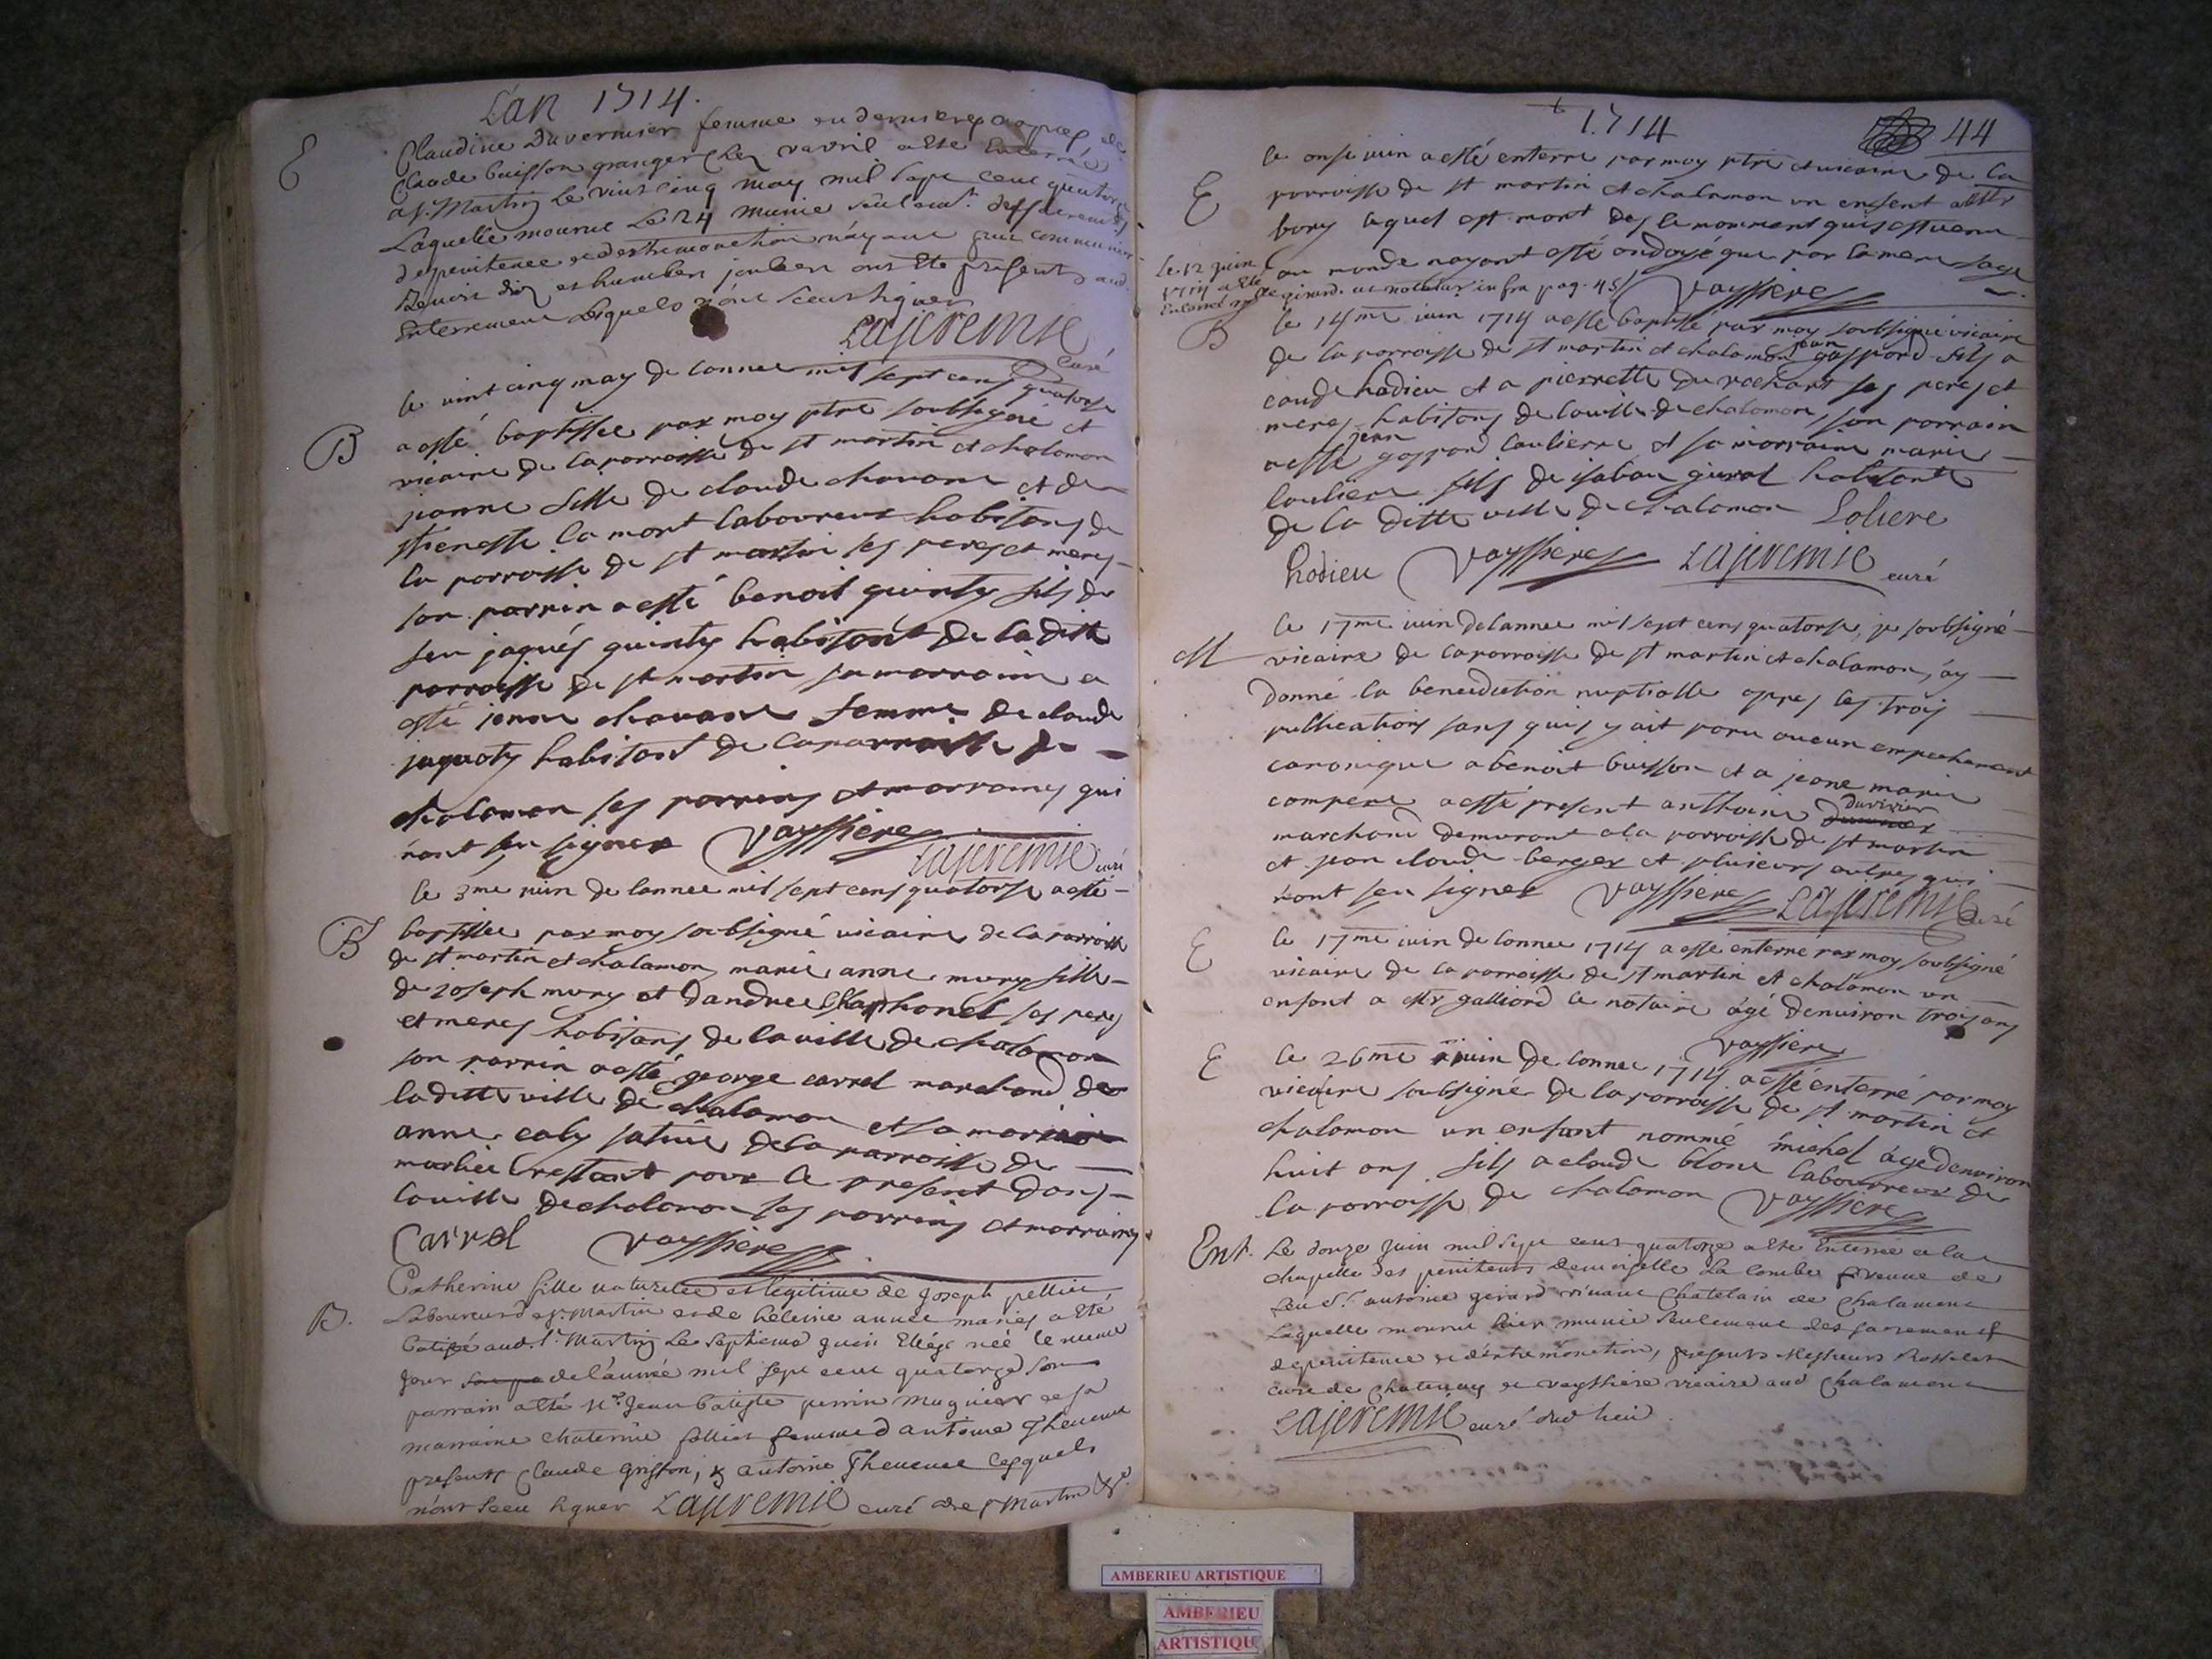 L'an 1714.
E
Claudine Duvernier femme en dernieres nopces de
Claude buisson granger chez ravril a été enterrée
a St. Martin le vint cinq may mil sept cent quatorze
Laquelle mourut le 24 munie seulemt. des sacrements
de penitence et d'extremonction n'ayant pu communier
et humbert joubert ont été presents aud.
Enterrement lesquels n'ont sceu signer
Lajeremie
Curé
le vint cinq may de lannee mil sept cens quatorse
B
a esté baptissée par moy ptre soubsigné et
vicaire de la parroisse de st martin et chalamon
jeanne fille de claude chavane et de
stienette la mont laboureur habitans de
la parroisse de st martin ses peres et meres
son parrin a esté benoit quinty fils de
feu jaques quinty habitant de la ditte
parroisse de st martin sa marraine a
esté jenne chavane femme de claude
jaquoty habitant de la parroisse de
chalamon ses parrins et marraines qui
nont seu signer Vayssiere
Lajeremie curé
le 3me juin de lannee mil sept cens quatorse a esté
B
baptissée par moy soubsigné vicaire de la parroisse
de st martin et chalamon, marie anne mury fille
de joseph mury et dandree Chaphonel ses peres
et meres habitans de la ville de chalamon
son parrin a esté george carrel marchand de
la ditte ville de chalamon et sa marraine
anne caly native de la parroisse de
marlieu restant pour le present dans
la ville de chalamon ses parrins et marraines
Carrel Vayssiere
Catherine fille naturelle et legitime de joseph pellier
B.
Laboureur de St. Martin et de heleine annee mariés a été
batisée aud. St. Martin le septieme juin Elle est née le meme
jour son pa de l'année mil sept cent quatorze son
parrain a été Me. Jean batiste perrin magnier et sa
marraine chaterine pellier femme d antoine Thevenet
presents Claude griffon, & antoine Thevenet lesquels
n'ont sceu signer Lajeremie curé de St Martin &c.
1714
44
le onse juin a esté enterre par moy ptre et vicaire de la
E
parroisse de st martin et chalamon un enfent a estr
bory lequel est mort des le momment quis est venu
au monde nayant esté ondoyé que par la mere sage
Vayssiere
le 12 juin
1714 a été
Enterré Mlle girard. ut notatur infra pag. 45
B
le 14me juin 1714 a esté baptisé par moy soubsigné vicaire
de la parroisse de st martin et chalamon jean gaspard fils a
claude hodieu et a pierrette du rochant ses peres et
meres habitans de la ville de chalamon, son parrain
a esté jean gaspard laulierre et sa marraine marie
lauliere fils de isabau girard habitante
de la ditte ville de chalamon Loliere
hodieu Vayssiere Lajeremie curé
le 17me juin de lannee mil sept cens quatorse, je soubsigné
M
vicaire de la parroisse de st martin et chalamon, ay
donné la benediction nuptialle apres les trois
publications sans quis y ait paru aucun empechement
canonique a benoit buisson et a jeane marie
compere a esté present anthoine duvivier
marchand demurant a la parroisse de st martin
et jean claude berger et plusieurs autres qui
nont seu signer Vayssiere Lajeremie curé
E
le 17me juin de lannee 1714 a esté enterré par moy soubsigné
vicaire de la parroisse de st martin et chalamon un
enfant a estr galliard le notaire agé denviron trois ans
Vayssiere
E
le 26me juin de lannee 1714 a esté enterré par moy
vicaire soubsigné de la parroisse de st martin et
chalamon un enfant nommé michel agé denviron
huit ans fils a claude blanc laboureur de
la parroisse de chalamon Vayssiere
Ent.
Le douze juin mil sept cent quatorze a été Enterrée a la
chapelle des penitents demoiselle La Combe veuve de
feu Sr. antoine girard vivant chatelain de chalamont
Laquelle mourut hier munie seulement des sacrements
de penitence et d'extremonction, presents Messieurs Rosselet
curé de chatenay et Vayssiere vicaire aud chalamont
Lajeremie curé dud lieu
AMBERIEU ARTISTIQUE
AMBERIEU
ARTISTIQU